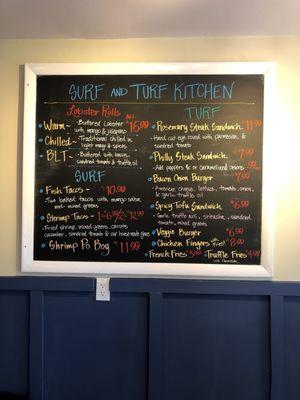 SURF AND TURF KITCHEN
Lobster Rolls
ALL $16.99
Warm - Buttered Lobster
with mango & jalapeno
Chilled - Traditional chilled in
light mayo & spices
BLT - Buttered with bacon,
sundried tomato & truffle oil
SURF
Fish Tacos - $10.99
Two baked tacos with mango salsa
and mixed greens
Shrimp Tacos - 1-6.99/2-12.99
Fried shrimp, mixed greens, carrots
cucumber, sundried tomato & our
Shrimp Po Boy $11.99
TURF
Rosemary Steak Sandwich $11.99
Hand cut eye round with parmesan, &
sundried tomato
Philly Steak Sandwich $7.99
Add peppers & or caramelized onions
Bacon Onion Burger $7.99
American cheese, lettuce, tomato, onion,
& garlic truffle aioli
Spicy Tofu Sandwich $6.99
Garlic truffle aioli, sriracha, sundried
tomato, mixed greens
Veggie Burger $6.99
Chicken Fingers $8.99
French Fries 3.99 Truffle Fries 4.99